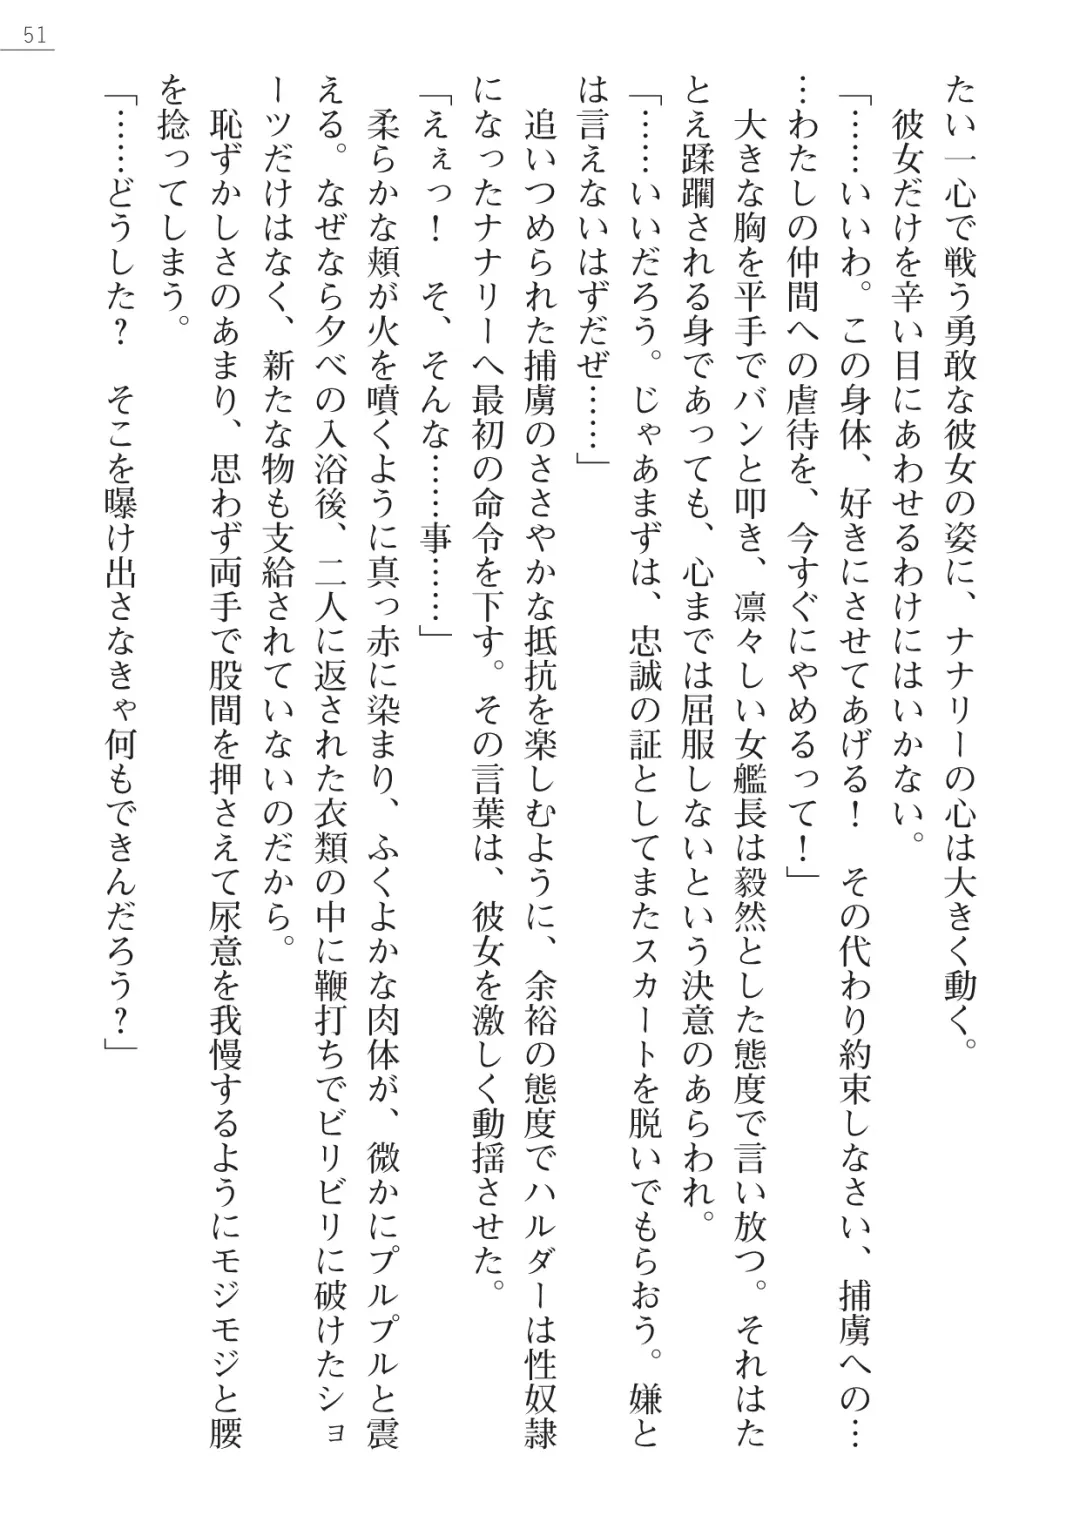 51
たい一心で戦う勇敢な彼女の姿に、ナナリーの心は大きく動く。
彼女だけを辛い目にあわせるわけにはいかない。
「……いいわ。この身体、好きにさせてあげる！　その代わり約束しなさい、捕虜への…
…わたしの仲間への虐待を、今すぐにやめるって！」
大きな胸を平手でバンと叩き、凛々しい女艦長は毅然とした態度で言い放つ。それはた
とえ蹂躙される身であっても、心までは屈服しないという決意のあらわれ。
「……いいだろう。じゃあまずは、忠誠の証としてまたスカートを脱いでもらおう。嫌と
は言えないはずだぜ……」
追いつめられた捕虜のささやかな抵抗を楽しむように、余裕の態度でハルダーは性奴隷
になったナナリーへ最初の命令を下す。その言葉は、彼女を激しく動揺させた。
「えぇっ！　そ、そんな……事……」
柔らかな頬が火を噴くように真っ赤に染まり、ふくよかな肉体が、微かにプルプルと震
える。なぜなら夕べの入浴後、二人に返された衣類の中に鞭打ちでビリビリに破けたショ
ーツだけはなく、新たな物も支給されていないのだから。
恥ずかしさのあまり、思わず両手で股間を押さえて尿意を我慢するようにモジモジと腰
を捻ってしまう。
「……どうした？　そこを曝け出さなきゃ何もできんだろう？」